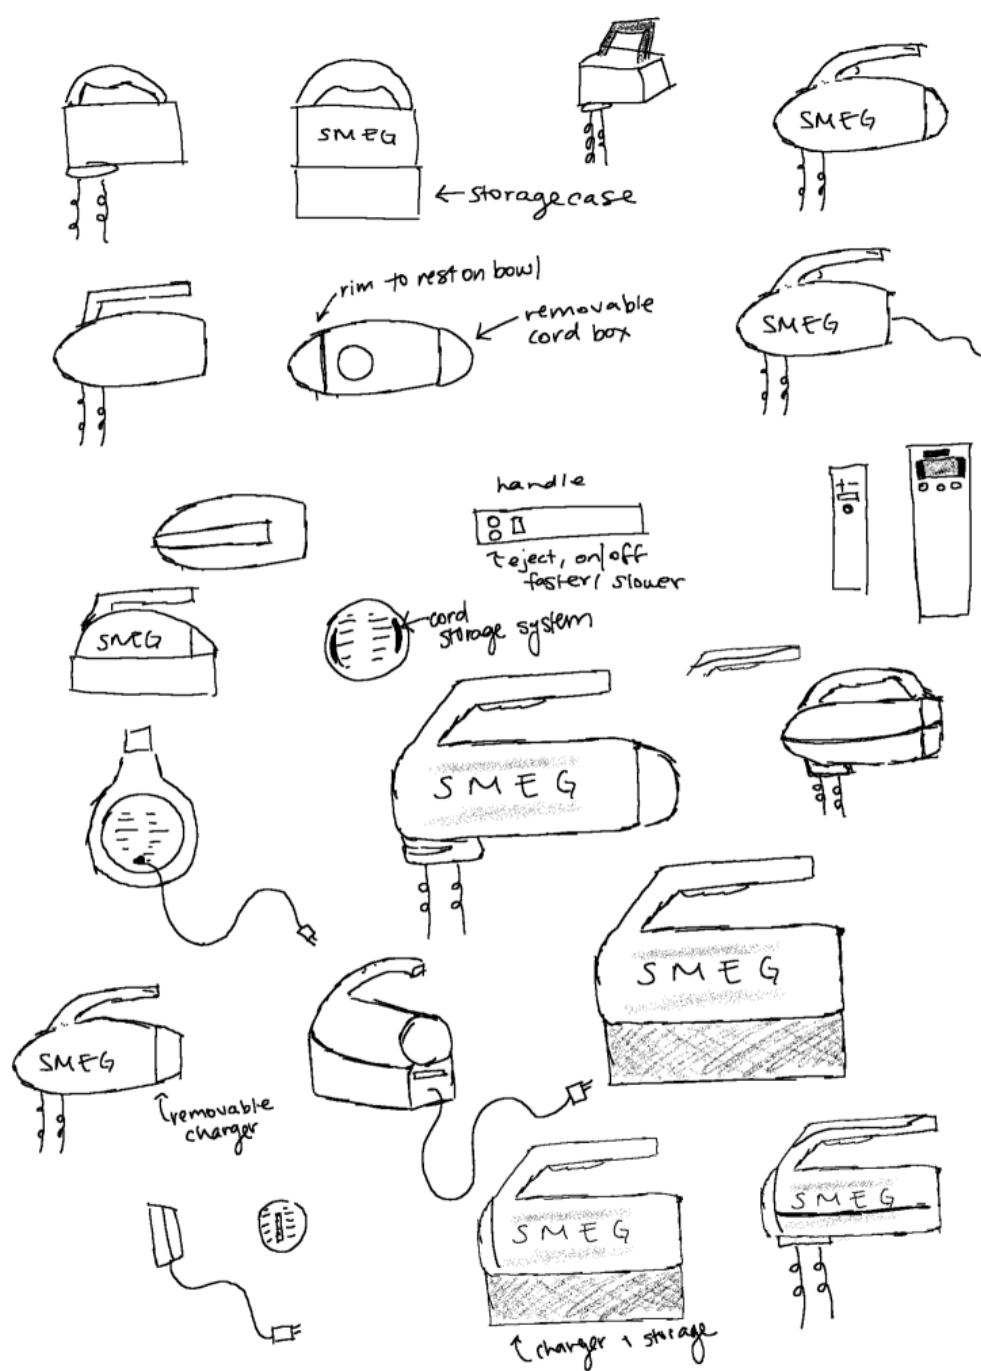 SMEG
SMEG
← storage case
rim to rest on bowl
removable
cord box
SMEG
handle
eject, on/off
faster/ slower
+ -
SMEG
cord
storage system
SMEG
SMEG
SMEG
removable
charger
SMEG
SMEG
charger + storage